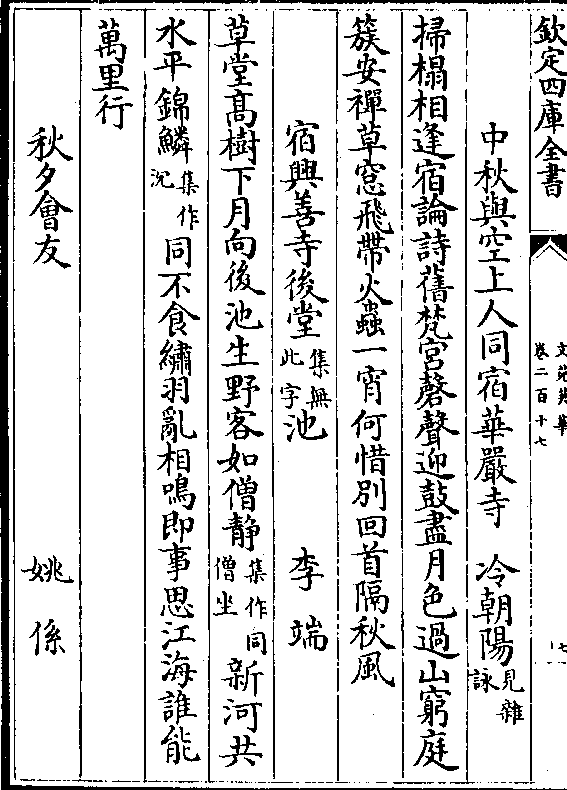 欽定四庫全書
文苑英華
卷二百十七
七
中秋與空上人同宿華嚴寺 冷朝陽見雜詠
掃榻相逢宿論詩舊梵宫磬聲迎鼓盡月色過山窮庭
簇安禪草窓飛帶火蟲一宵何惜別回首隔秋風
宿興善寺後堂集無此字池 李端
草堂高樹下月向後池生野客如僧静集作同僧坐新河共
水平錦鱗集作沉同不食繡羽亂相鳴即事思江海誰能
萬里行
秋夕會友 姚係